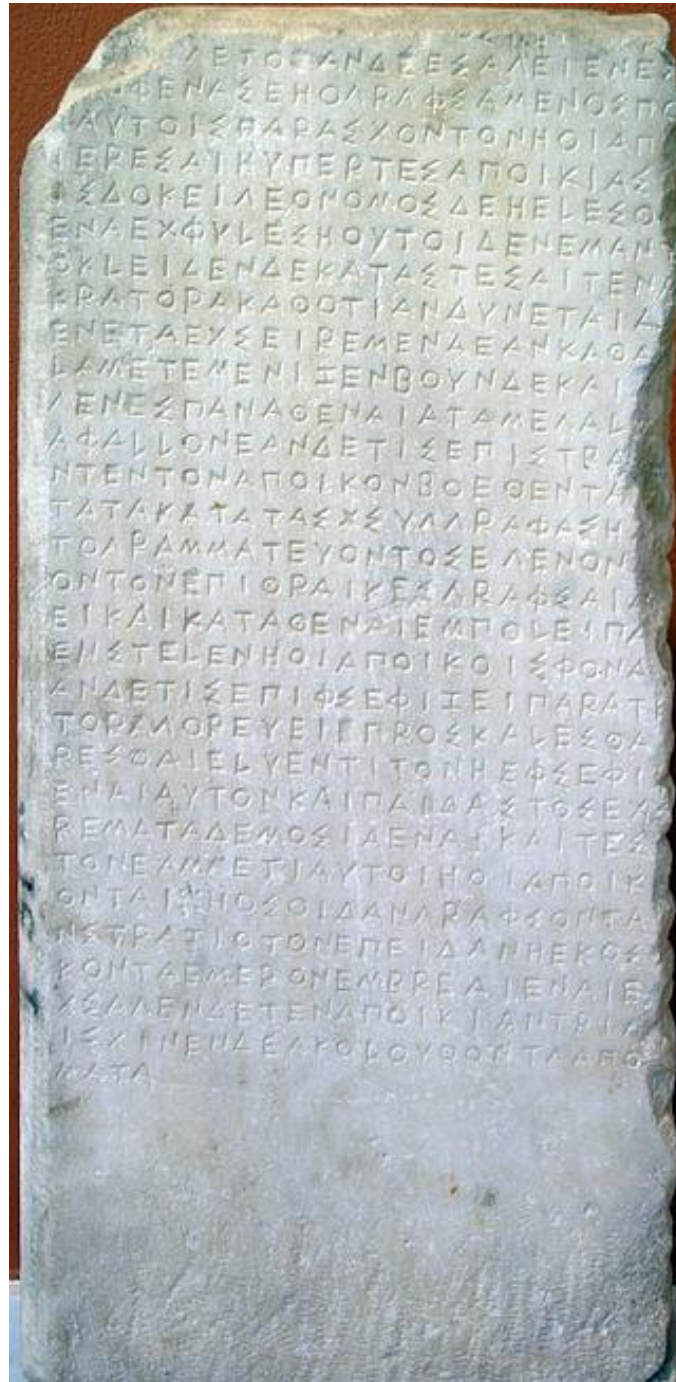 ΓΕΤΟ ΑΝΔΕΕΣΑΓΕΙΕΝΕ
ΦΕΝΑΣΕΗΟΓΡΑΦΣΑΜΕΝΟΣΠΟ
ΑΥΤΟΙΣΠΑΡΑΣΧΟΝΤΟΝΗΟΙΑΠ
ΙΕΡΕΣΑΙΗΥΠΕΡΤΕΣΑΠΟΙΚΙΑΣ
ΙΣΔΟΚΕΙΓΕΟΝΟΜΟΣΔΕΗΕΛΕΣΘ
ΕΝΑΕΧΦΥΛΕΣΗΟΥΤΟΙΔΕΝΕΜΑΝΤ
ΟΚΛΕΙΔΕΝΔΕΚΑΤΑΣΤΕΣΑΙΤΕΝΑ
ΚΡΑΤΟΡΑΚΑΘΟΤΙΑΝΔΥΝΕΤΑΙΑ
ΕΝΕΤΑΕΧΣΕΙΡΕΜΕΝΑΕΑΝΚΑΘΑ
ΛΑΜΕΤΕΜΕΝΙΖΕΝΒΟΥΝΔΕΚΑΙ
ΓΕΝΕΣΠΑΝΑΘΕΝΑΙΑΤΑΜΕΓΑΛ
ΑΦΑΛΛΟΝΕΑΝΔΕΤΙΣΕΠΙΣΤΡΑ
ΝΤΕΝΤΟΝΑΠΟΙΚΟΝΒΟΕΘΕΝΤΑ
ΤΑΤΑΚΑΤΑΤΑΣΧΣΥΓΓΡΑΦΑΣΗ
ΤΟΓΡΑΜΜΑΤΕΥΟΝΤΟΣΕΓΕΝΟΝ
ΟΝΤΟΝΕΠΙΘΡΑΙΚΕΣΓΡΑΦΣΑΙ
ΕΙΚΑΙΚΑΤΑΘΕΝΑΙΕΜΠΟΛΕΙΠΑ
ΕΝΣΤΕΛΕΝΗΟΙΑΠΟΙΚΟΙΣΦΟΝΑ
ΑΝΔΕΤΙΣΕΠΙΦΣΕΦΙΖΕΙΠΑΡΑΤΕ
ΤΟΡΑΓΟΡΕΥΕΙΕΠΡΟΣΚΑΛΕΣΘΑ
ΡΕΣΘΑΙΕΛΥΕΝΤΙΤΟΝΗΕΦΣΕΦΙ
ΕΝΑΙΑΥΤΟΝΚΑΙΠΑΙΔΑΣΤΟΣΕΧΣ
ΡΕΜΑΤΑΔΕΜΟΣΙΑΕΝΑΙΚΑΙΤΕΣ
ΤΟΝΕΑΜΜΕΤΙΑΥΤΟΙΗΟΙΑΠΟΙΚ
ΟΝΤΑΙΗΟΣΟΙΔΑΝΓΡΑΦΣΟΝΤΑ
ΝΣΤΡΑΤΙΟΤΟΝΕΠΕΙΔΑΝΗΕΚΟΣ
ΚΟΝΤΑΕΜΕΡΟΝΕΜΒΡΕΑΙΕΝΑΙΕ
ΧΣΑΓΕΝΔΕΤΕΝΑΠΟΙΚΙΑΝΤΡΙΑ
ΙΣΧΙΝΕΝΔΕΑΚΟΛΟΥΘΟΝΤΑΑΠΟ
ΜΑΤΑ